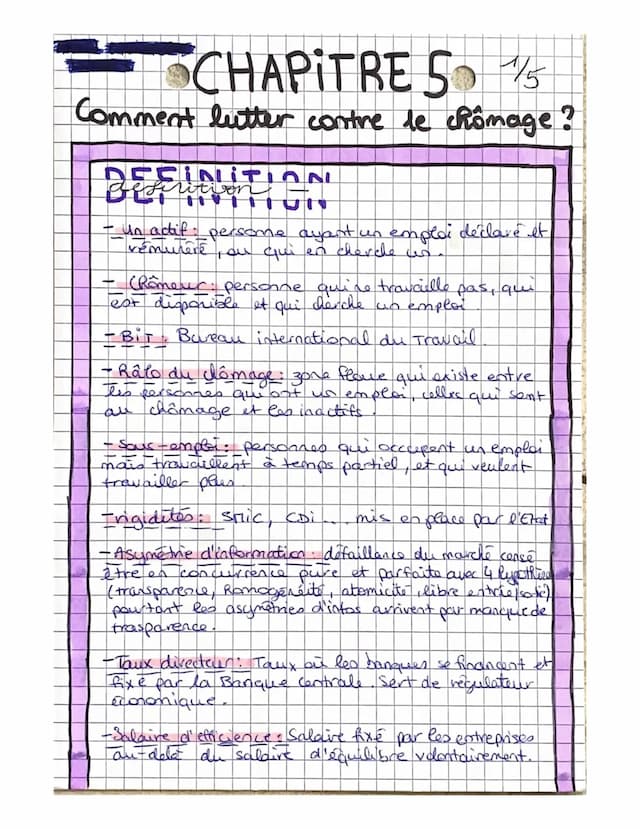 CHAPITRE 5 1/5
Comment lutter contre le chômage ?
DEFINITION
definition
- un actif : personne ayant un emploi déclaré et
rémunéré, ou qui en cherche un.
- Chômeur : personne qui ne travaille pas, qui
est disponible et qui cherche un emploi.
- BIT : Bureau international du Travail.
- Hâlo du chômage : zone floue qui existe entre
les personnes qui ont un emploi, celles qui sont
au chômage et les inactifs.
- Sous-emploi : personnes qui occupent un emploi
mais travaillent à temps partiel, et qui veulent
travailler plus.
- rigidités : SMIC, CDI ... mis en place par l'Etat
- Asymétrie d'information : défaillance du marché censé
être en concurrence pure et parfaite avec 4 hypothèses
(transparence, homogénéité, atomicité, libre entrée/sortie)
pourtant les asymétries d'infos arrivent par manque de
trasparence.
- Taux directeur : Taux où les banques se financent et
fixé par la Banque Centrale. Sert de régulateur
économique.
- Salaire d'efficience : Salaire fixé par les entreprises
au-delà du salaire d'équilibre volontairement.